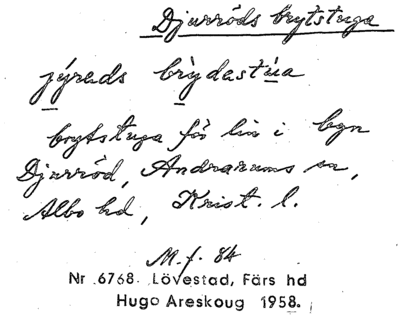 Djurröds brytstuga
jýrøds brỳdastùa
brytstuga för lin i byn
Djurröd, Andrarums sn,
Albo hd, Krist. l.
M.f. 84
Nr 6768 Lövestad, Färs hd
Hugo Areskoug 1958.